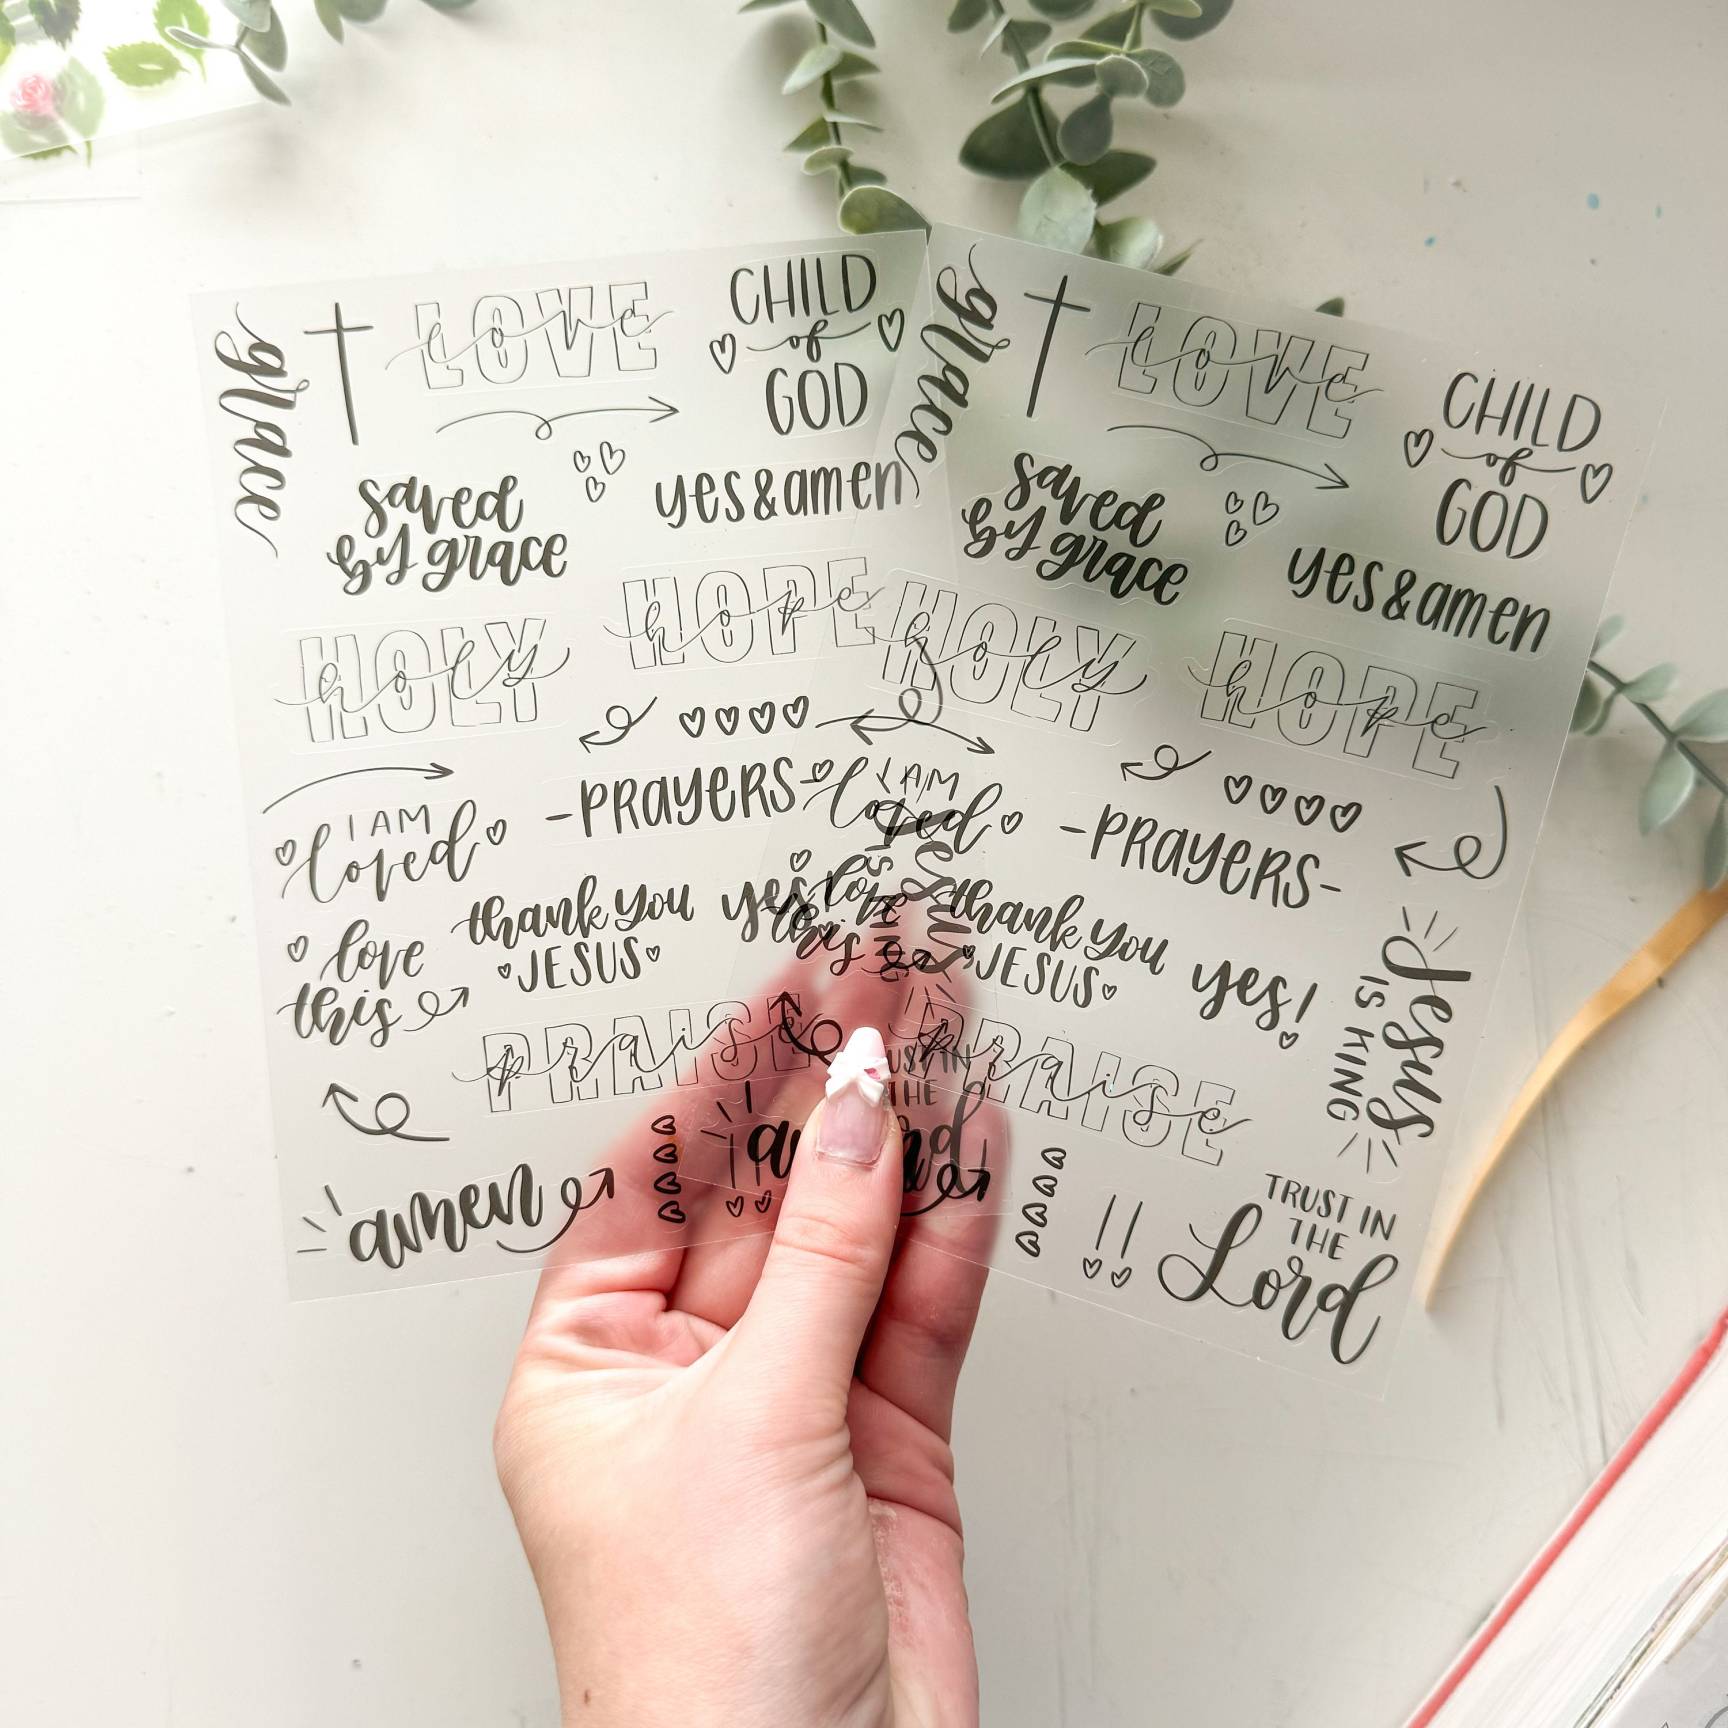 grace
LOVE
love
CHILD
of
GOD
saved
by grace
yes & amen
HOLY
holy
HOPE
hope
I AM
loved
-PRAYERS-
love
this
thank you
JESUS
yes!
Jesus
IS KING
PRAISE
praise
amen
TRUST IN
THE
Lord
grace
LOVE
love
CHILD
of
GOD
saved
by grace
yes & amen
HOLY
holy
HOPE
hope
I AM
loved
-PRAYERS-
love
this
thank you
JESUS
yes!
Jesus
IS KING
PRAISE
praise
TRUST IN
THE
Lord